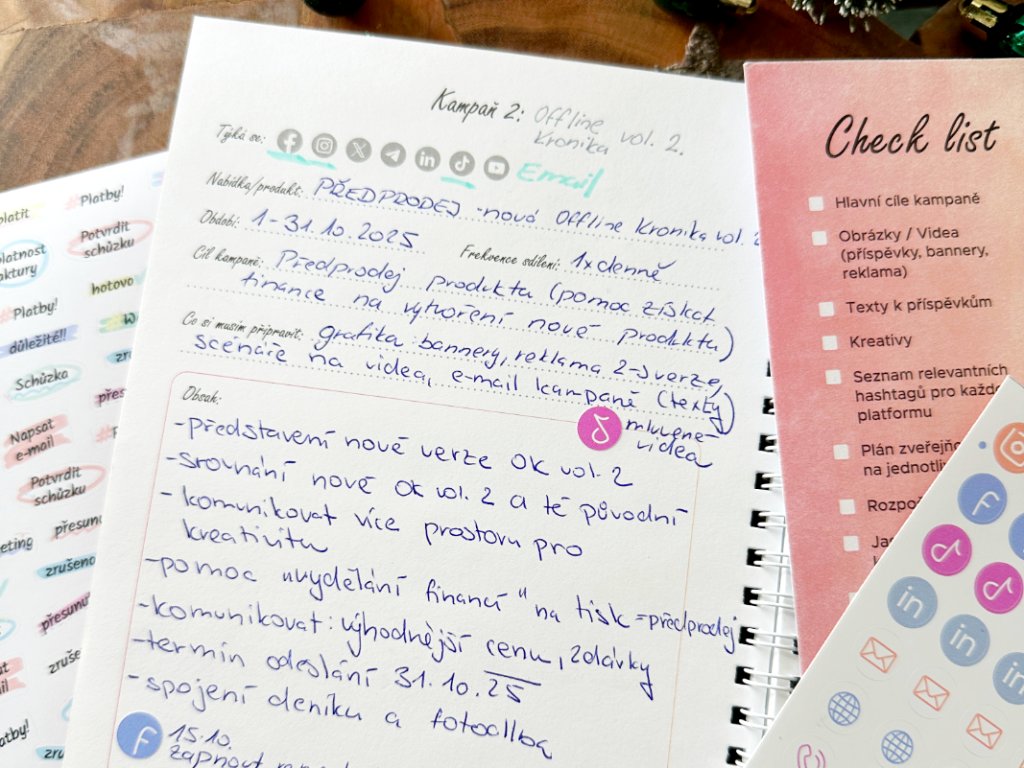 Kampaň 2: Offline
Kronika vol. 2.
Týká se: Email
Nabídka/produkt: PŘEDPRODEJ - nová Offline Kronika vol. 2
Období: 1 - 31.10.2025 Frekvence sdílení: 1x denně
Cíl kampaně: Předprodej produktu (pomoc získat
finance na vytvoření nové produktu)
Co si musím připravit: grafika: bannery, reklama 2 -> verze,
scénáře na videa, e-mail kampaně (texty)
Obsah:
mluvené
videa
-představení nové verze OK vol. 2
-srovnání nové OK vol. 2 a té původní
- komunikovat více prostoru pro
kreativitu
-pomoc "vydělání financí" na tisk = předprodej
-komunikovat: výhodnější cenu, 2 dávky
-termín odeslání 31.10.25
-spojení deníku a fotoalba
15.10.
zapnout
Check list
Hlavní cíle kampaně
Obrázky / Videa
(příspěvky, bannery,
reklama)
Texty k příspěvkům
Kreativy
Seznam relevantních
hashtagů pro každ
platformu
Plán zveřejň
na jednotli
Rozpo
Ja
platit
Platby!
platnost
aktury
Potvrdit
schůzku
Platby!
hotovo
důležité!!
Schůzka
zru
přes
Napsat
e-mail
Potvrdit
schůzku
přesunu
eting
zrušeno
přesunu
zruše
Platby!
zru